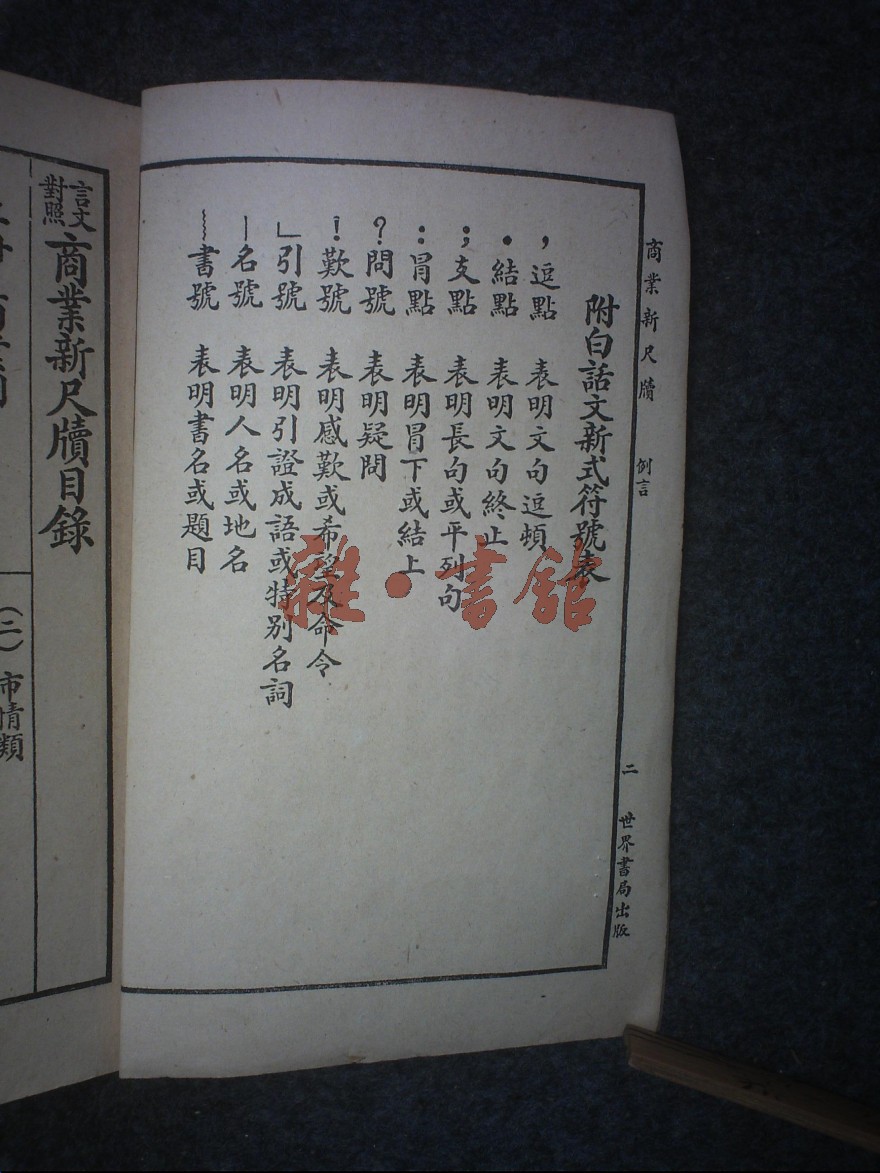 商業新尺牘 例言 二 世界書局出版
附白話文新式符號表
，逗點 表明文句逗頓
．結點 表明文句終止
；支點 表明長句或平列句
：冐點 表明冐下或結上
？問號 表明疑問
！歎號 表明感歎或希望及命令
」引號 表明引證成語或特別名詞
｜名號 表明人名或地名
﹏書號 表明書名或題目
言文對照商業新尺牘目錄
（二）市情類
雜·書館